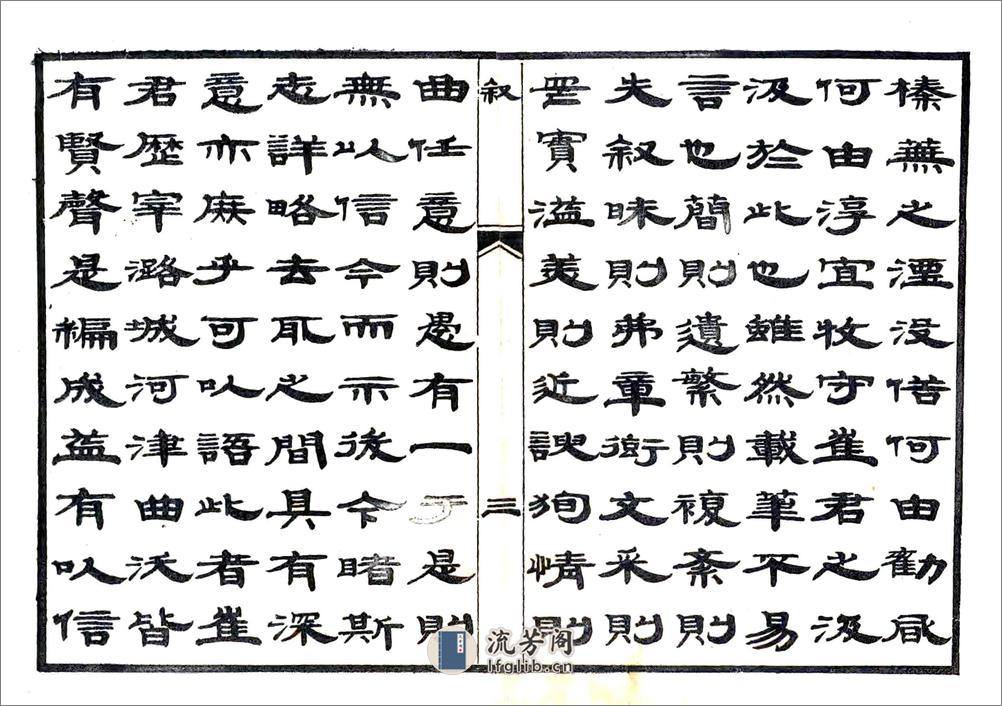 榛蕪之湮没俗何由勸風
何由淳宜牧守崔君之汲
汲於此也雖然載筆不易
言也簡則遺繁則複紊則
失叙昧則弗章衒文采則
罔實溢美則近諛狥情則
叙 三
曲任意則愚有一于是則
無以信今而示後今睹斯
志詳略去取之間具有深
意亦庶乎可以語此者崔
君歷宰潞城河津曲沃皆
有賢聲是編成益有以信
流芳阁
lfglib.cn